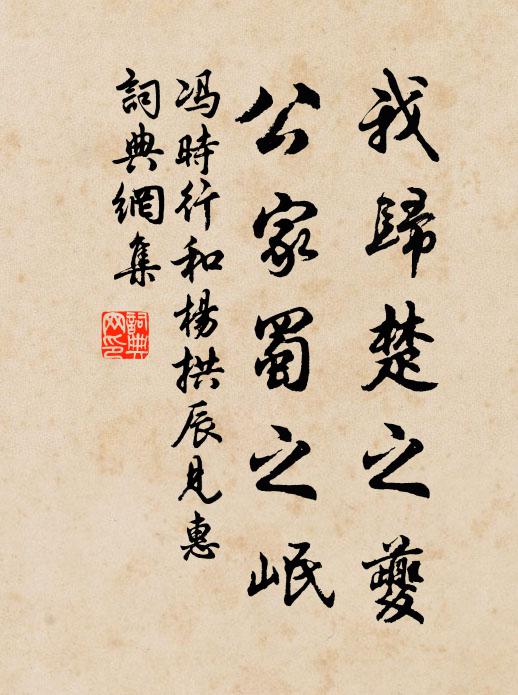 我歸楚之夔
公家蜀之岷
冯時行和楊拱辰見惠
詞典網集
詞典網印